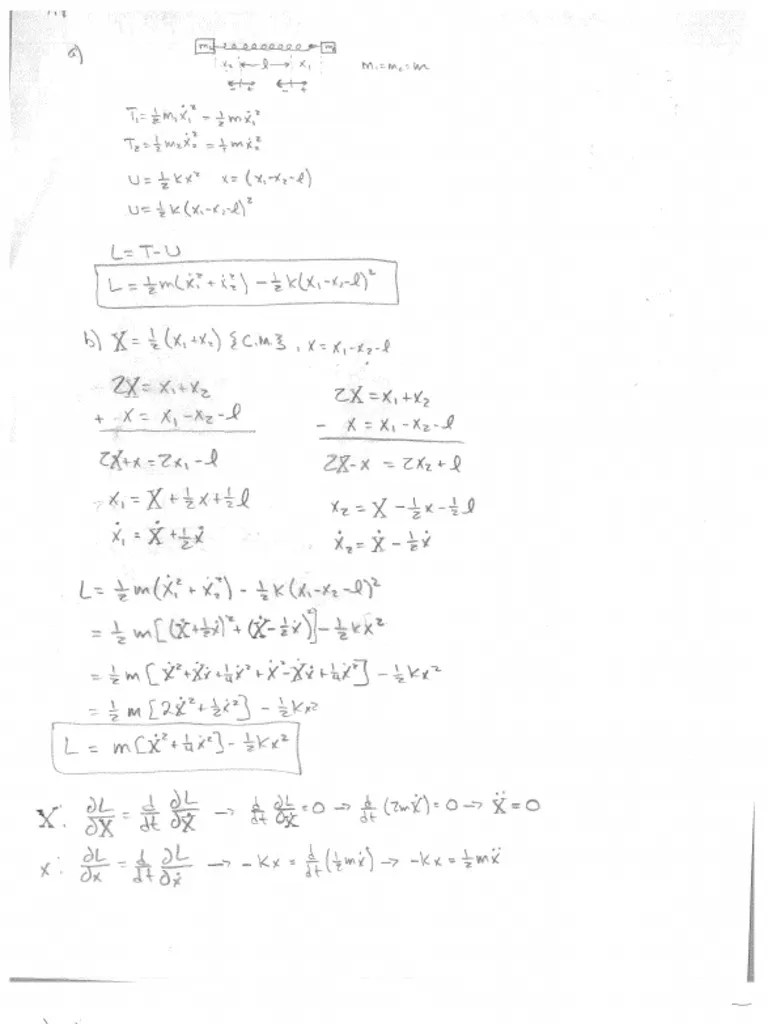 a)
m₂ m₁
x₂ ← l → x₁ m₁=m₂=m
- + - +
T₁ = ½m₁ẋ₁² = ½mẋ₁²
T₂ = ½m₂ẋ₂² = ½mẋ₂²
U = ½kx² x = (x₁-x₂-l)
U = ½k(x₁-x₂-l)²
L = T-U
L = ½m(ẋ₁² + ẋ₂²) - ½k(x₁-x₂-l)²
b) X = ½(x₁+x₂) {C.M.}, x = x₁-x₂-l
2X = x₁+x₂ 2X = x₁+x₂
+ x = x₁-x₂-l - x = x₁-x₂-l
2X+x = 2x₁-l 2X-x = 2x₂+l
x₁ = X + ½x + ½l x₂ = X - ½x - ½l
ẋ₁ = Ẋ + ½ẋ ẋ₂ = Ẋ - ½ẋ
L = ½m(ẋ₁² + ẋ₂²) - ½k(x₁-x₂-l)²
= ½m[(Ẋ+½ẋ)² + (Ẋ-½ẋ)²] - ½kx²
= ½m[Ẋ²+Ẋẋ+¼ẋ²+Ẋ²-Ẋẋ+¼ẋ²] - ½kx²
= ½m[2Ẋ²+½ẋ²] - ½kx²
L = m[Ẋ²+¼ẋ²] - ½kx²
X: ∂L/∂X = d/dt ∂L/∂Ẋ → d/dt ∂L/∂Ẋ = 0 → d/dt (2mẊ) = 0 → Ẍ = 0
x: ∂L/∂x = d/dt ∂L/∂ẋ → -kx = d/dt(½mẋ) → -kx = ½mẍ